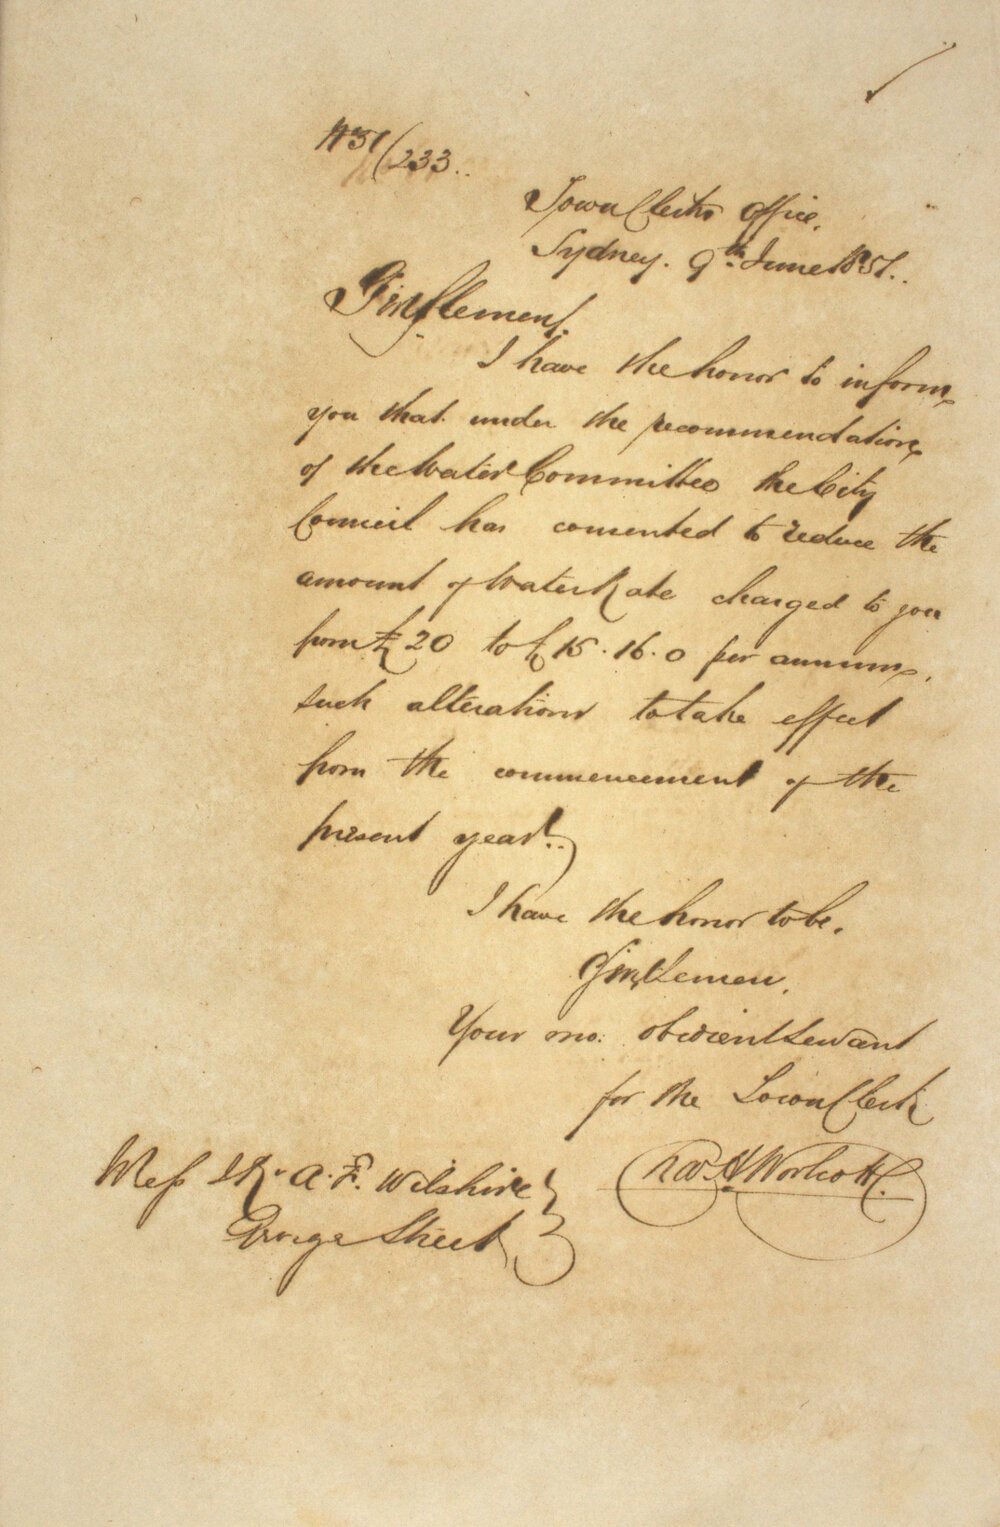 Town Clerks Office,
Sydney. 9th June 1851..
Gentlemen,
I have the honor to inform
you that under the recommendation
of the Water Committee the City
Council has consented to reduce the
amount of Water Rate charged to you
from £20 to £15.16.0 per annum,
such alteration to take effect
from the commencement of the
present year..
I have the honor to be,
Gentlemen,
Your mo. obedient servant
for the Town Clerk
Woolcott
Mess A. F. Wilshire
George Street